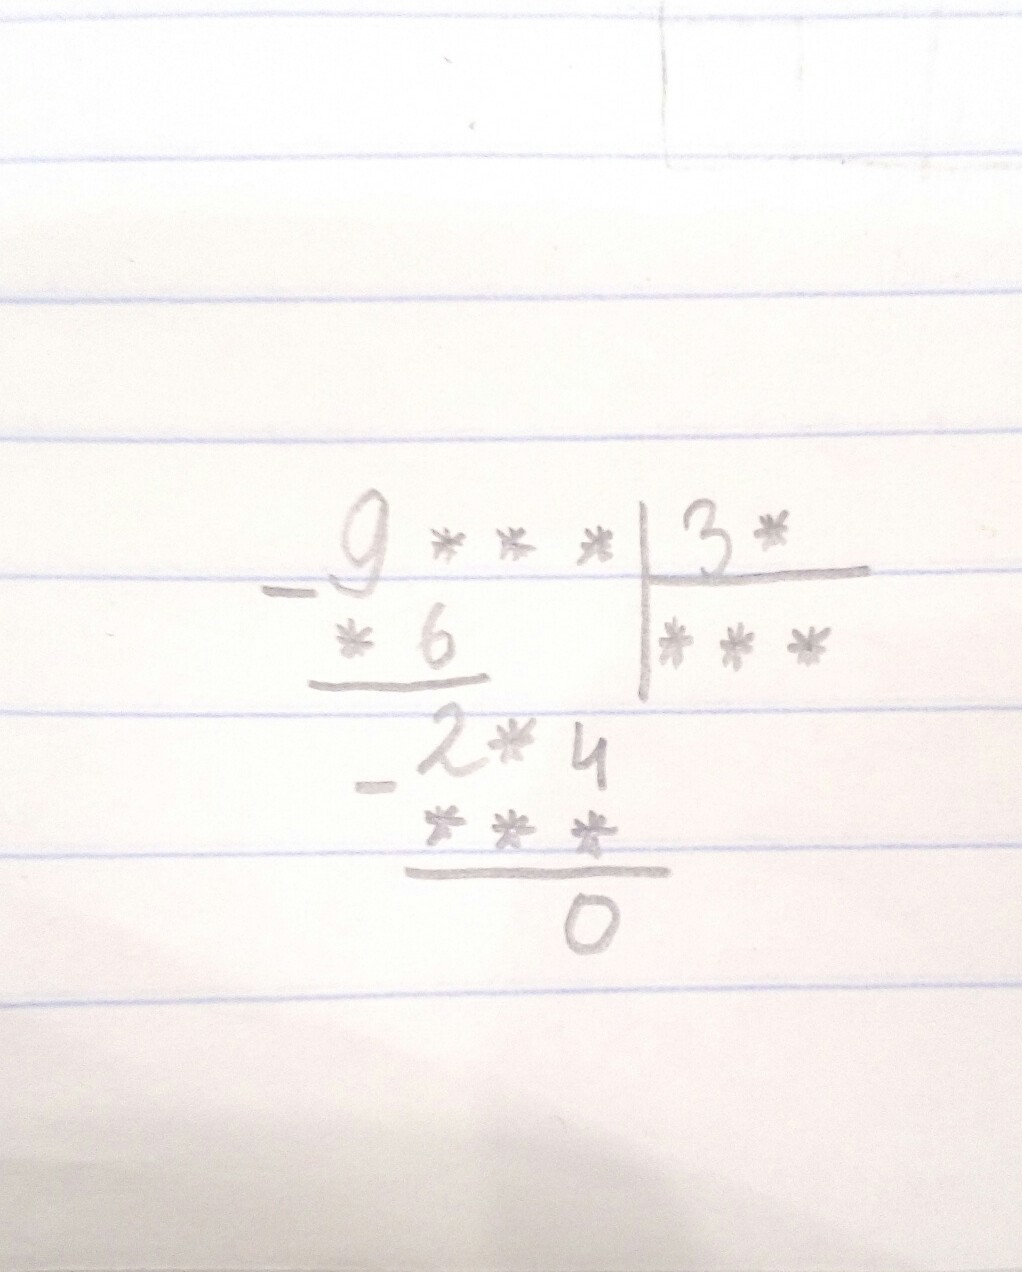 9 * * * | 3 *
- * 6 | * * *
2 * 4
- * * *
0